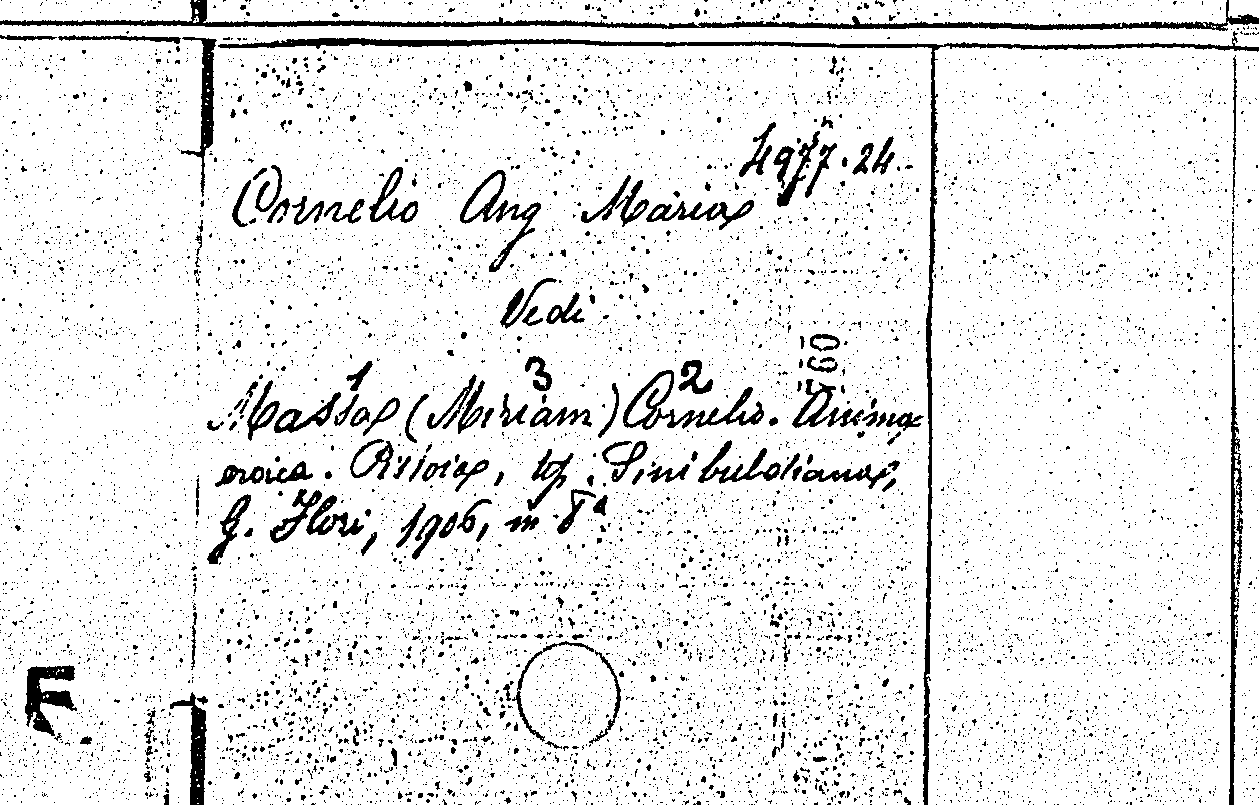 4977.24
Cornelio Ang Maria
Vedi
1 3 2
Massa (Miriam) Cornelio. Anima
eroica. Pistoia, tip. Sinibuldiana,
G. Flori, 1906, in 8ª